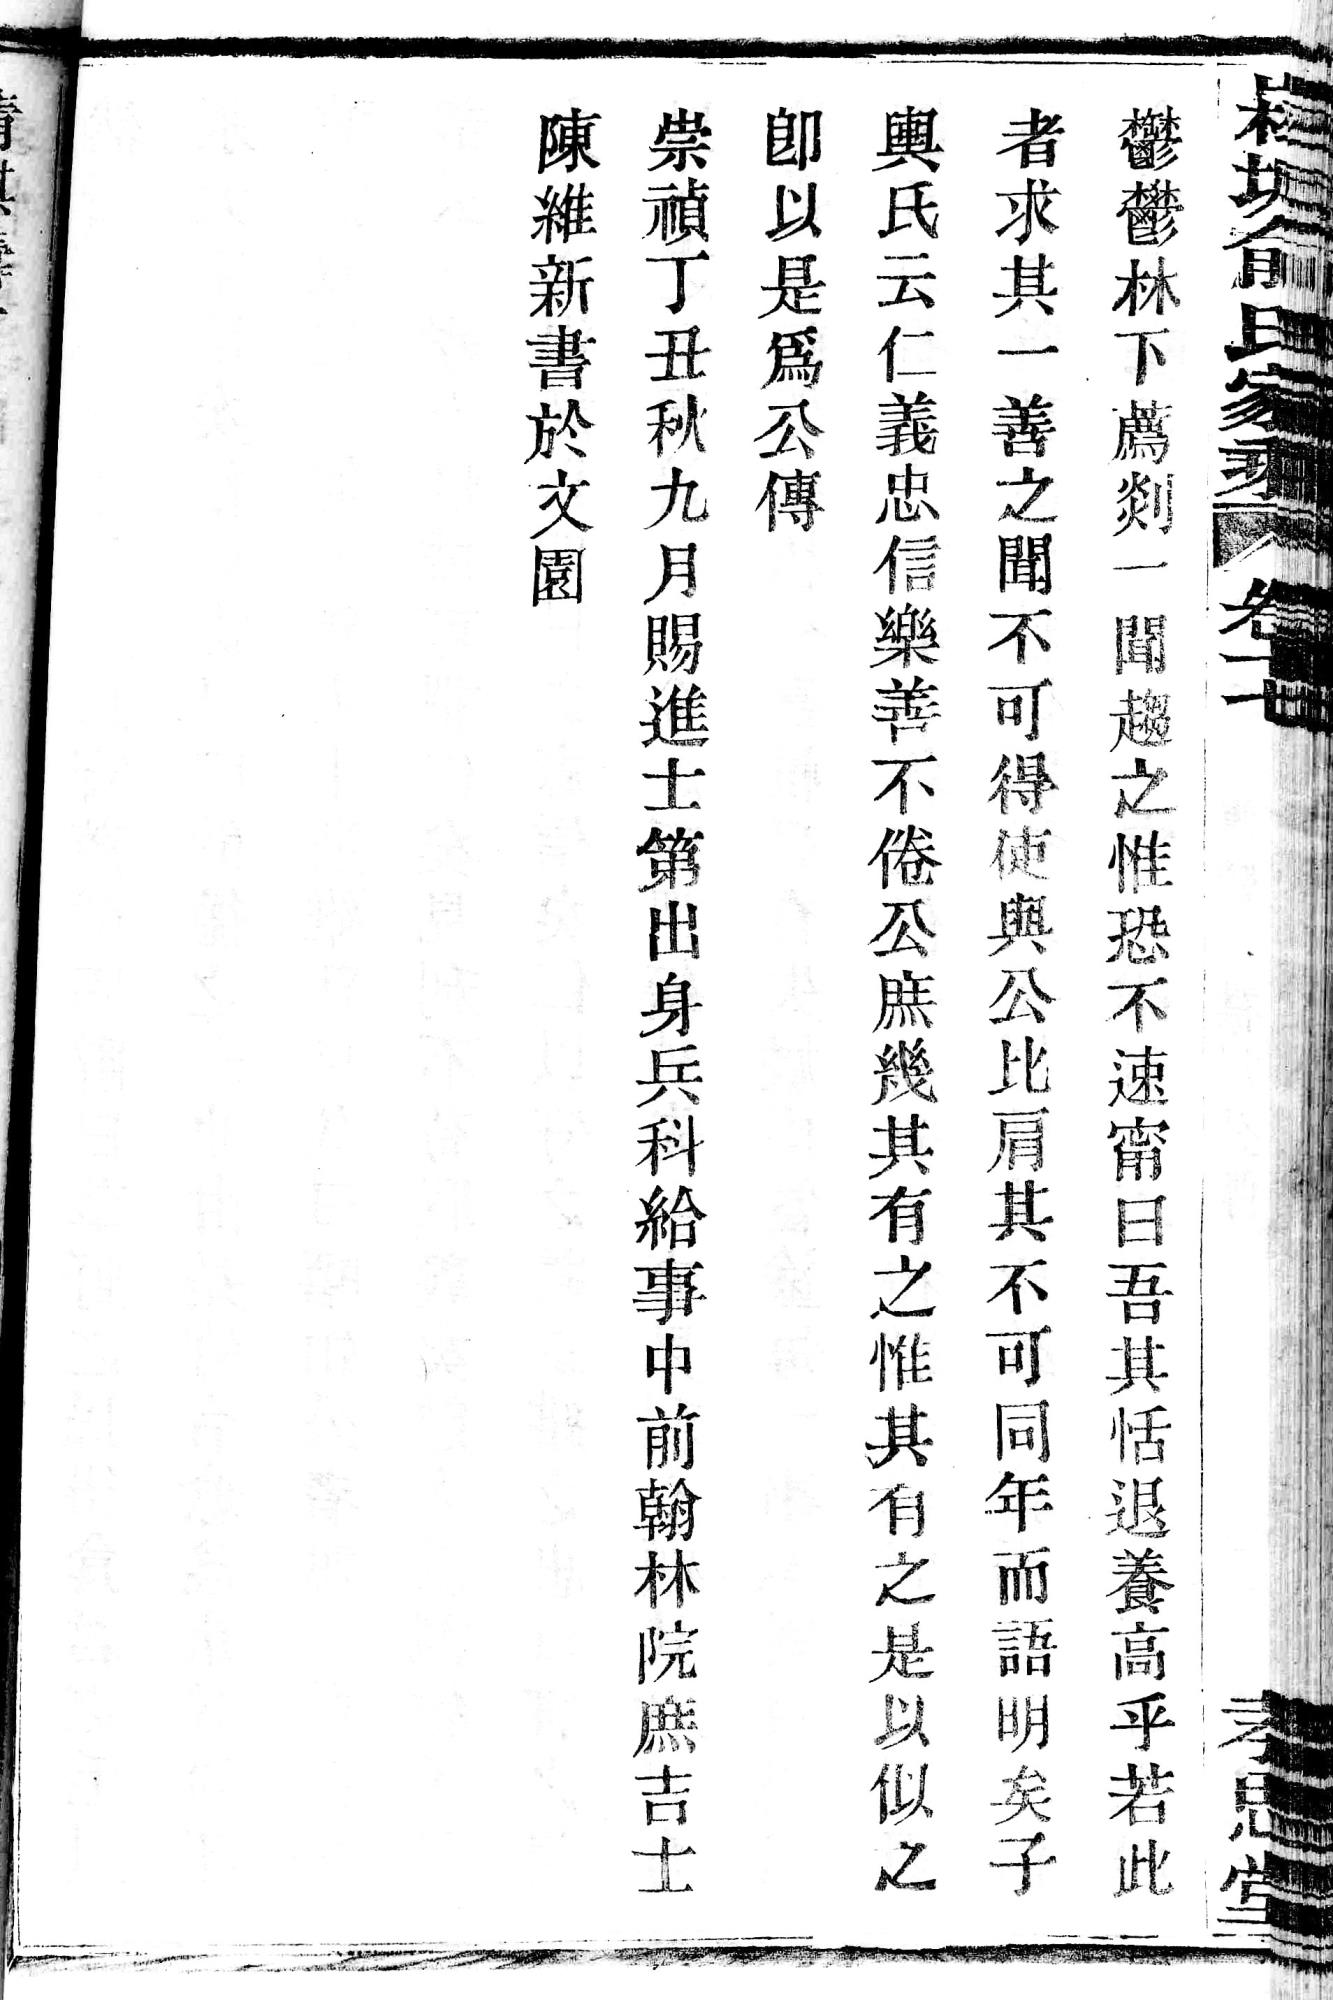 鬱鬱林下薦剡一聞趨之惟恐不速甯曰吾其恬退養高乎若此
者求其一善之聞不可得使與公比肩其不可同年而語明矣子
輿氏云仁義忠信樂善不倦公庶幾其有之惟其有之是以似之
卽以是爲公傳
崇禎丁丑秋九月賜進士第出身兵科給事中前翰林院庶吉士
陳維新書於文園
俞氏家乘 卷十七 孝思堂